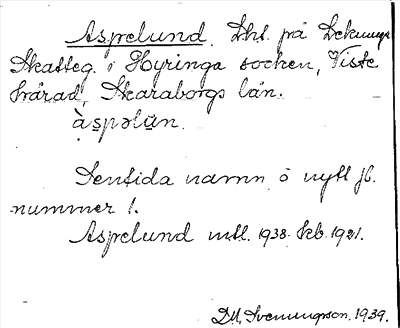 Aspelund. Lht. på Dekungs
Skatteg. i Hyringa socken, Viste
härad, Skaraborgs län.
àspəlun.
Sentida namn å nytt jb.
nummer 1.
Aspelund mtl. 1938. kb. 1921.
D.U. Svenungson. 1939.